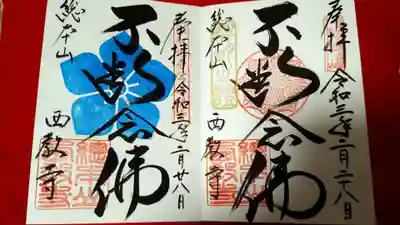 奉拝 令和三年二月二十八日
不断念佛
総本山 西教寺
奉拝 令和三年二月廿八日
不断念佛
総本山 西教寺